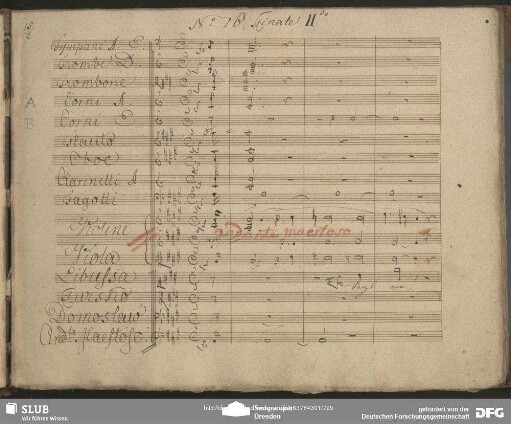 No 16 Finale II do
Tympani A E.
Trombe D.
Trombone
Corni A.
Corni E
Flauto
Oboe
Clarinetti A
Fagotti
Violini
andante maestoso
Viola
Libussa
Domoslaus
And.te Maestoso.
A
B
SLUB
Wir führen Wissen.
Dresden
gefördert von der
Deutschen Forschungsgemeinschaft
DFG